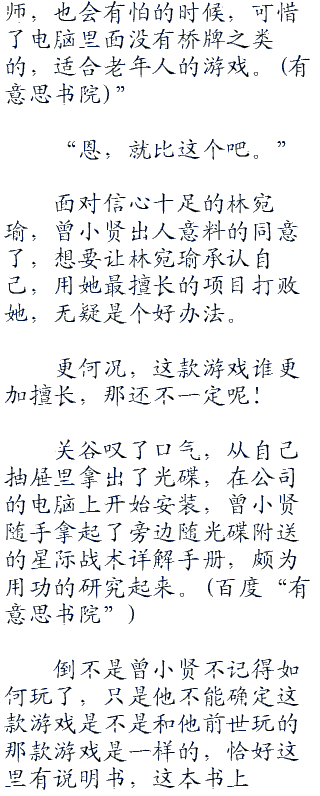 师，也会有怕的时候，可惜
了电脑里面没有桥牌之类
的，适合老年人的游戏。(有
意思书院)”
“恩，就比这个吧。”
面对信心十足的林宛
瑜，曾小贤出人意料的同意
了，想要让林宛瑜承认自
己，用她最擅长的项目打败
她，无疑是个好办法。
更何况，这款游戏谁更
加擅长，那还不一定呢！
关谷叹了口气，从自己
抽屉里拿出了光碟，在公司
的电脑上开始安装，曾小贤
随手拿起了旁边随光碟附送
的星际战术详解手册，颇为
用功的研究起来。(百度“有
意思书院”)
倒不是曾小贤不记得如
何玩了，只是他不能确定这
款游戏是不是和他前世玩的
那款游戏是一样的，恰好这
里有说明书，这本书上